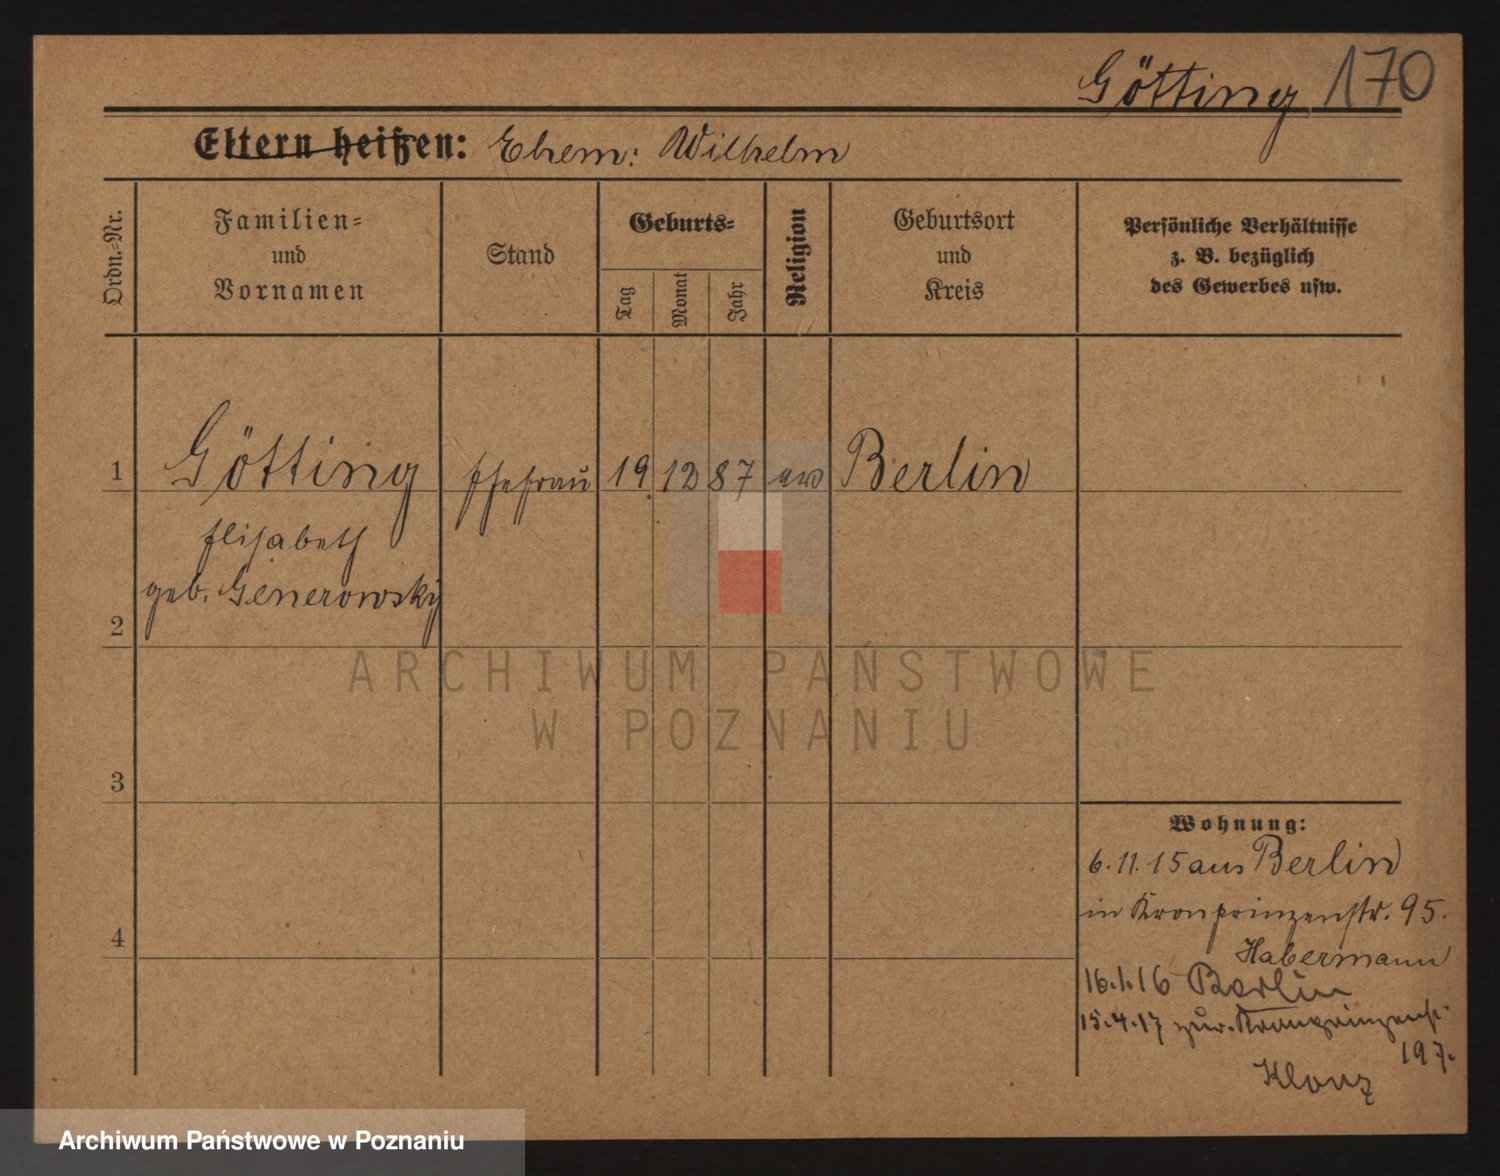 Götting 170
Eltern heißen: Ehem: Wilhelm
Ordn.-Nr.
Familien-
und
Vornamen
Stand
Geburts-
Tag
Monat
Jahr
Religion
Geburtsort
und
Kreis
Persönliche Verhältnisse
z. B. bezüglich
des Gewerbes usw.
1 Götting Ehefrau 19 12 87 ev Berlin
Elisabeth
geb. Generowsky
2
3
4
Wohnung:
6.11.15 aus Berlin
in Kronprinzenstr. 95.
Habermann
16.1.16 Berlin
15.4.17 zur. Kronprinzenst.
197.
ARCHIWUM PAŃSTWOWE
W POZNANIU
Archiwum Państwowe w Poznaniu